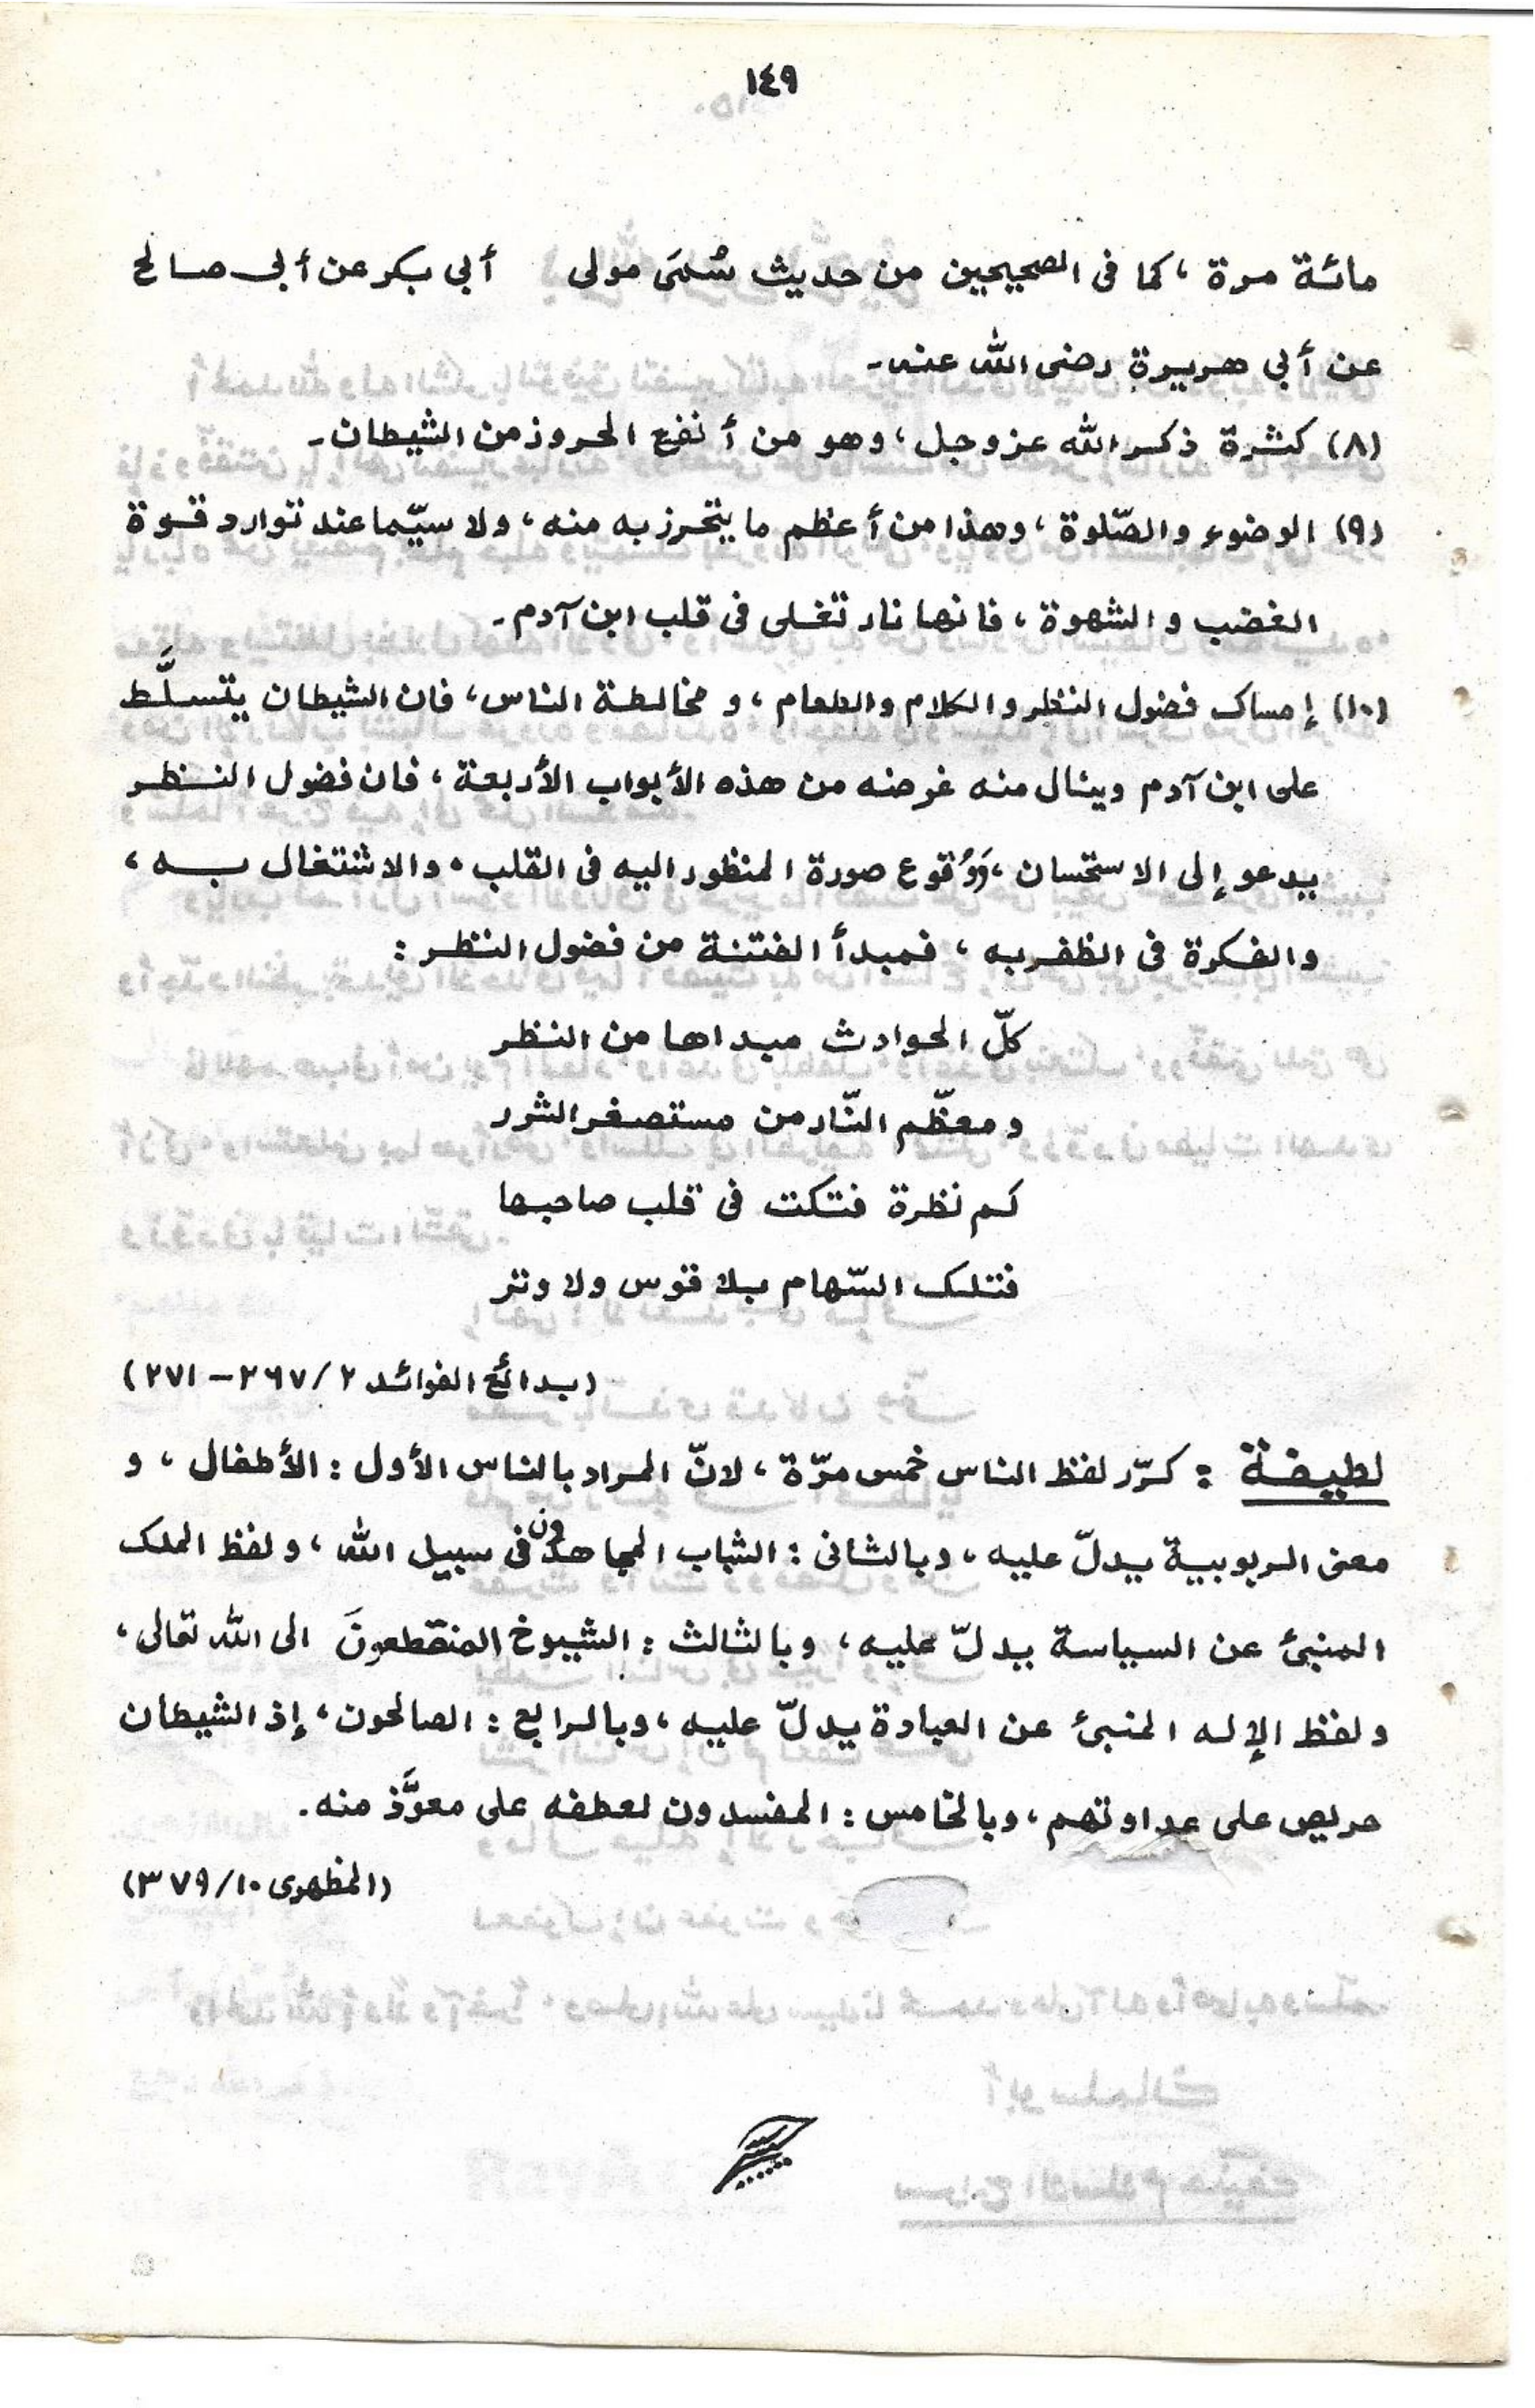 ١٤٩
مائة مرة ، كما فى الصحيحين من حديث سُمَىّ مولى أبي بكر عن أبى صالح
عن أبي هريرة رضى الله عنه۔
(٨) كثرة ذكر الله عز وجل ، وهو من أنفع الحروز من الشيطان۔
(٩) الوضوء والصّلوة ، وهذا من أعظم ما يتحرز به منه ، ولا سيّما عند توارد قوة
الغضب و الشهوة ، فانها نار تغلى فى قلب ابن آدم۔
(١٠) إمساك فضول النظر والكلام والطعام ، و مخالطة الناس ، فان الشيطان يتسلَّط
على ابن آدم وينال منه غرضه من هذه الأبواب الأربعة ، فان فضول النظر
يدعو إلى الاستحسان ، وَوُقوع صورة المنظور اليه فى القلب ، والاشتغال به ،
والفكرة فى الظفر به ، فمبدأ الفتنة من فضول النظر :
كلّ الحوادث مبداها من النظر
و معظّم النّار من مستصغر الشرر
كم نظرة فتكت فى قلب صاحبها
فتلك السّهام بلا قوس ولا وتر
(بدائع الفوائد ٢/٢٦٧ – ٢٧١)
لطيفة : كرّر لفظ الناس خمس مرّة ، لانّ المراد بالناس الأول : الأطفال ، و
معنى الربوبية يدلّ عليه ، وبالثانى : الشباب المجاهدون فى سبيل الله ، و لفظ الملك
المنبئ عن السياسة يدلّ عليه ، وبالثالث : الشيوخ المنقطعونَ الى الله تعالى ،
ولفظ الإله المنبئ عن العبادة يدلّ عليه ، وبالرابع : الصالحون ، إذ الشيطان
حريص على عداوتهم ، وبالخامس : المفسدون لعطفه على معوَّذ منه.
(المظهرى ١٠/٣٧٩)